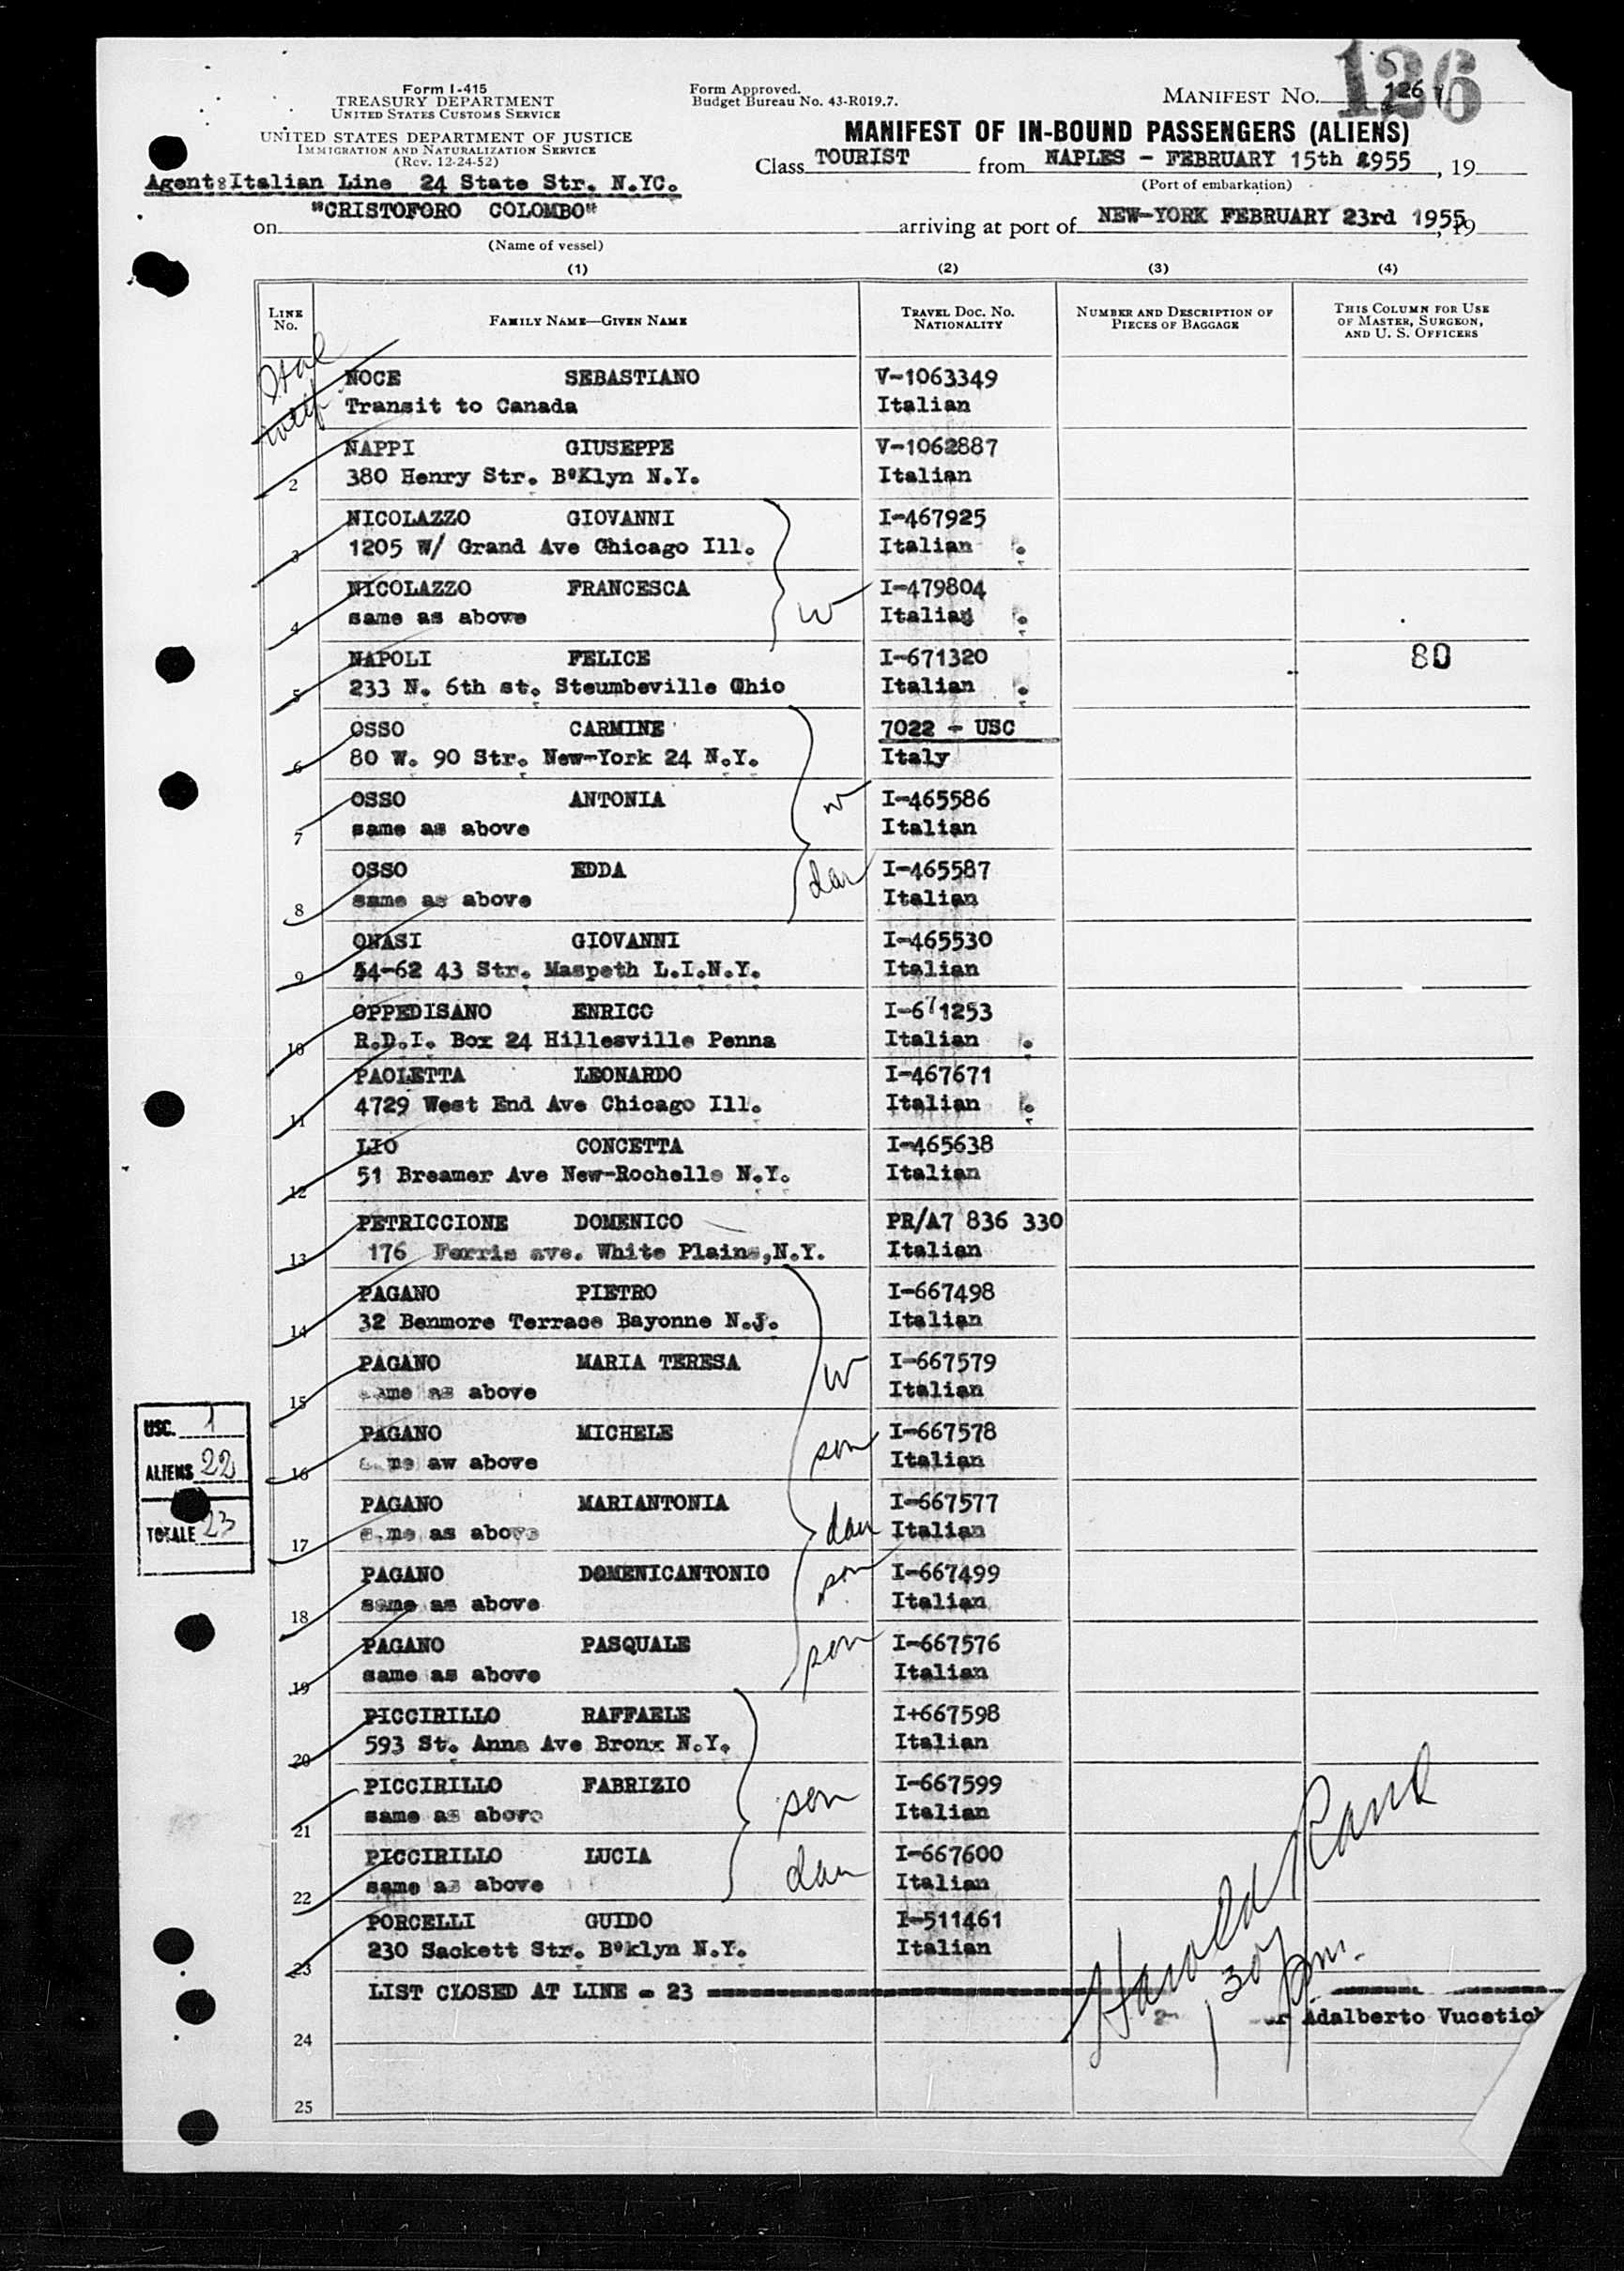 126
Form I-415
TREASURY DEPARTMENT
UNITED STATES CUSTOMS SERVICE
UNITED STATES DEPARTMENT OF JUSTICE
IMMIGRATION AND NATURALIZATION SERVICE
(Rev. 12-24-52)
Agent:Italian Line 24 State Str. N.YC.
Form Approved.
Budget Bureau No. 43-R019.7.
MANIFEST NO. 126
MANIFEST OF IN-BOUND PASSENGERS (ALIENS)
Class TOURIST from NAPLES - FEBRUARY 15th 1955, 19
(Port of embarkation)
on "CRISTOFORO COLOMBO" arriving at port of NEW-YORK FEBRUARY 23rd 1955, 19
(Name of vessel)
(1) (2) (3) (4)
LINE No. FAMILY NAME—GIVEN NAME TRAVEL DOC. NO. NATIONALITY NUMBER AND DESCRIPTION OF PIECES OF BAGGAGE THIS COLUMN FOR USE OF MASTER, SURGEON, AND U. S. OFFICERS
NOCE SEBASTIANO V-1063349
Transit to Canada Italian
NAPPI GIUSEPPE V-1062887
2 380 Henry Str. B'Klyn N.Y. Italian
NICOLAZZO GIOVANNI I-467925
3 1205 W/ Grand Ave Chicago Ill. Italian
NICOLAZZO FRANCESCA W I-479804
4 same as above Italian
NAPOLI FELICE I-671320 80
5 233 N. 6th st. Steumbeville Ohio Italian
OSSO CARMINE 7022 - USC
6 80 W. 90 Str. New-York 24 N.Y. Italy
OSSO ANTONIA w I-465586
7 same as above Italian
OSSO EDDA dau I-465587
8 same as above Italian
ONASI GIOVANNI I-465530
9 54-62 43 Str. Maspeth L.I.N.Y. Italian
OPPEDISANO ENRICO I-671253
10 R.D.I. Box 24 Hillesville Penna Italian
PAOLETTA LEONARDO I-467671
11 4729 West End Ave Chicago Ill. Italian
LIO CONCETTA I-465638
12 51 Breamer Ave New-Rochelle N.Y. Italian
PETRICCIONE DOMENICO PR/A7 836 330
13 176 Ferris ave. White Plains,N.Y. Italian
PAGANO PIETRO I-667498
14 32 Benmore Terrace Bayonne N.J. Italian
PAGANO MARIA TERESA W I-667579
15 same as above Italian
PAGANO MICHELE son I-667578
16 same aw above Italian
PAGANO MARIANTONIA I-667577
17 same as above dau Italian
PAGANO DOMENICANTONIO son I-667499
18 same as above Italian
PAGANO PASQUALE son I-667576
19 same as above Italian
PICCIRILLO RAFFAELE I+667598
20 593 St. Anna Ave Bronx N.Y. Italian
PICCIRILLO FABRIZIO son I-667599
21 same as above Italian
PICCIRILLO LUCIA dau I-667600
22 same as above Italian
PORCELLI GUIDO I-511461
23 230 Sackett Str. B'klyn N.Y. Italian
LIST CLOSED AT LINE - 23
Adalberto Vucetich
24
25
USC. 1
ALIENS 22
TOTALE 23
Harold Rand
130 pm.